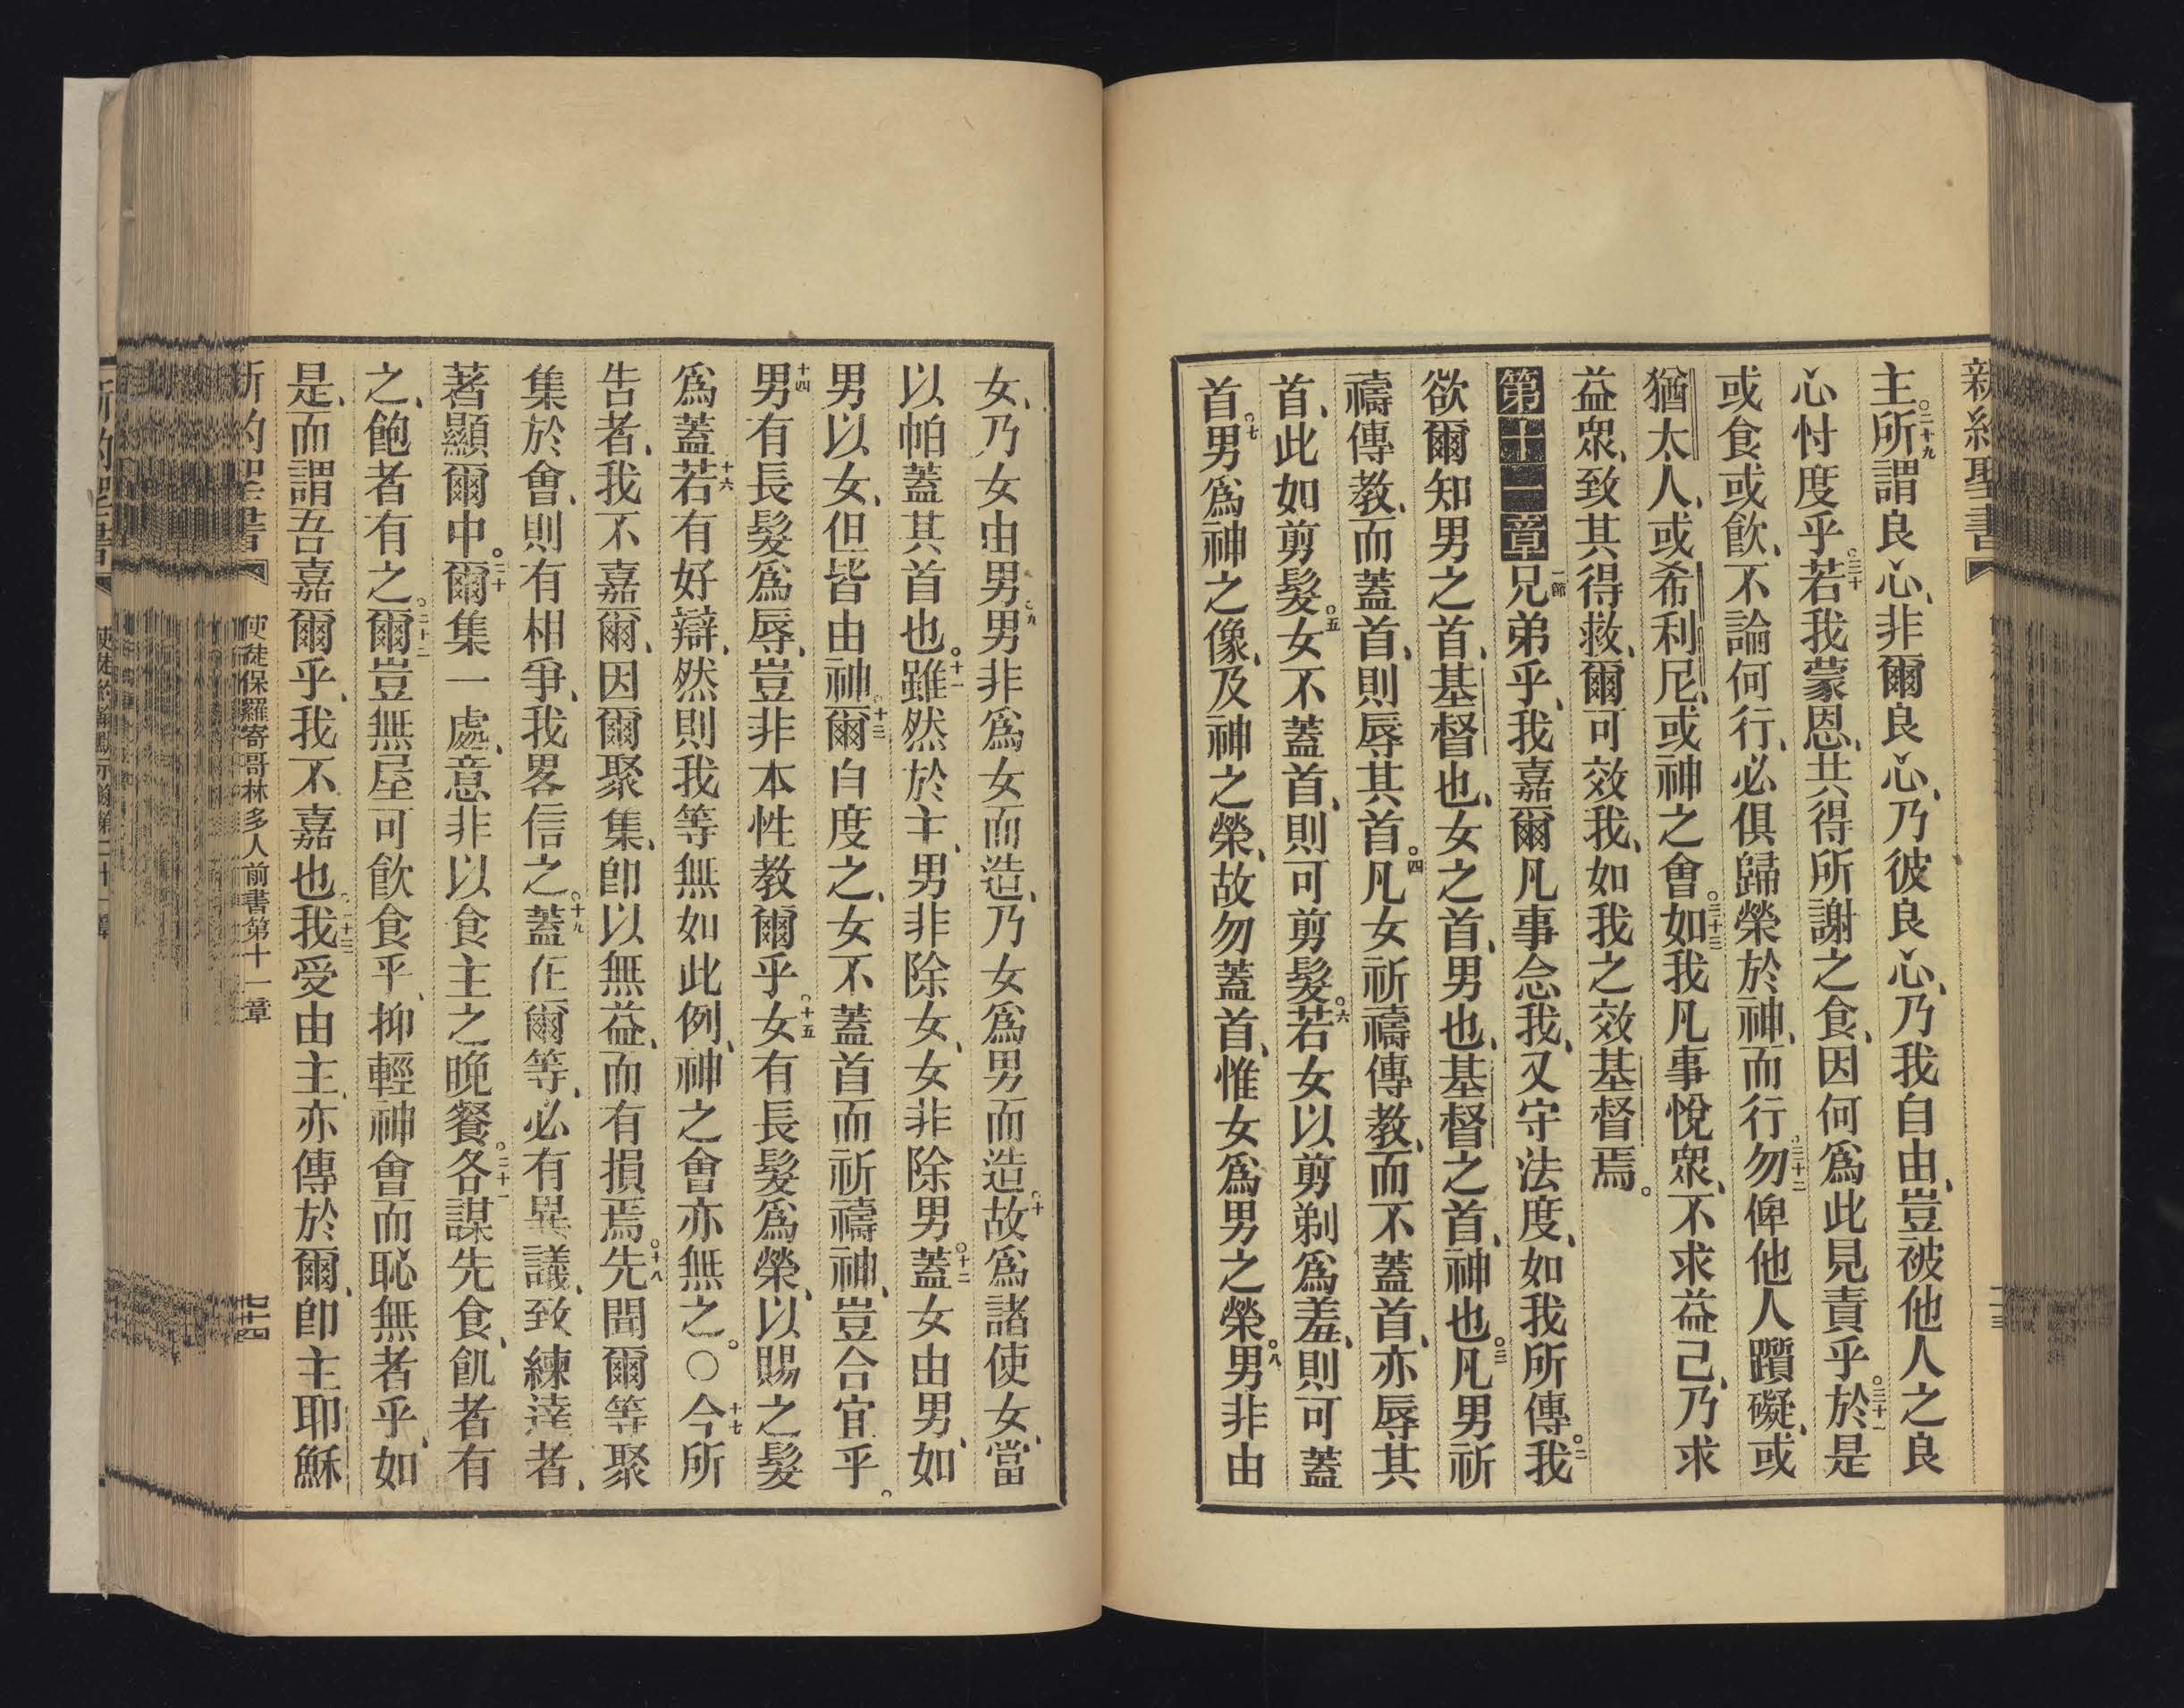 新約聖書
主、所謂良心、非爾良心、乃彼良心、乃我自由、豈被他人之良
二十九
心忖度乎。若我蒙恩、共得所謝之食、因何爲此見責乎。於是
三十
三十一
或食或飲、不論何行、必俱歸榮於神、而行。勿俾他人躓礙、或
三十二
猶太人、或希利尼、或神之會。如我凡事悅衆、不求益己、乃求
三十三
益衆、致其得救、爾可效我、如我之效基督焉。
第十一章兄弟乎、我嘉爾凡事念我、又守法度、如我所傳。我
一節
二
欲爾知男之首、基督也、女之首、男也、基督之首、神也。凡男祈
三
禱傳教、而蓋首、則辱其首。凡女祈禱傳教、而不蓋首、亦辱其
四
首、此如剪髮。女不蓋首、則可剪髮。若女以剪剃爲羞、則可蓋
五
六
首。男爲神之像、及神之榮、故勿蓋首、惟女爲男之榮。男非由
七
八
女、乃女由男。男非爲女而造、乃女爲男而造。故爲諸使女、當
九
十
以帕蓋其首也。雖然於主、男非除女、女非除男。蓋女由男、如
十一
十二
男以女、但皆由神。爾自度之、女不蓋首而祈禱神、豈合宜乎。
十三
男有長髮爲辱、豈非本性教爾乎。女有長髮爲榮、以賜之髮
十四
十五
爲蓋。若有好辯、然則我等無如此例、神之會亦無之。○今所
十六
十七
告者、我不嘉爾、因爾聚集、卽以無益、而有損焉。先聞爾等聚
十八
集於會、則有相爭、我畧信之。蓋在爾等、必有異議、致練達者、
十九
著顯爾中。爾集一處、意非以食主之晚餐。各謀先食、飢者有
二十
二十一
之、飽者有之。爾豈無屋可飲食乎、抑輕神會而恥無者乎、如
二十二
是、而謂吾嘉爾乎、我不嘉也。我受由主、亦傳於爾、卽主耶穌
二十三
新約聖書 使徒保羅寄哥林多人前書第十一章 七十四